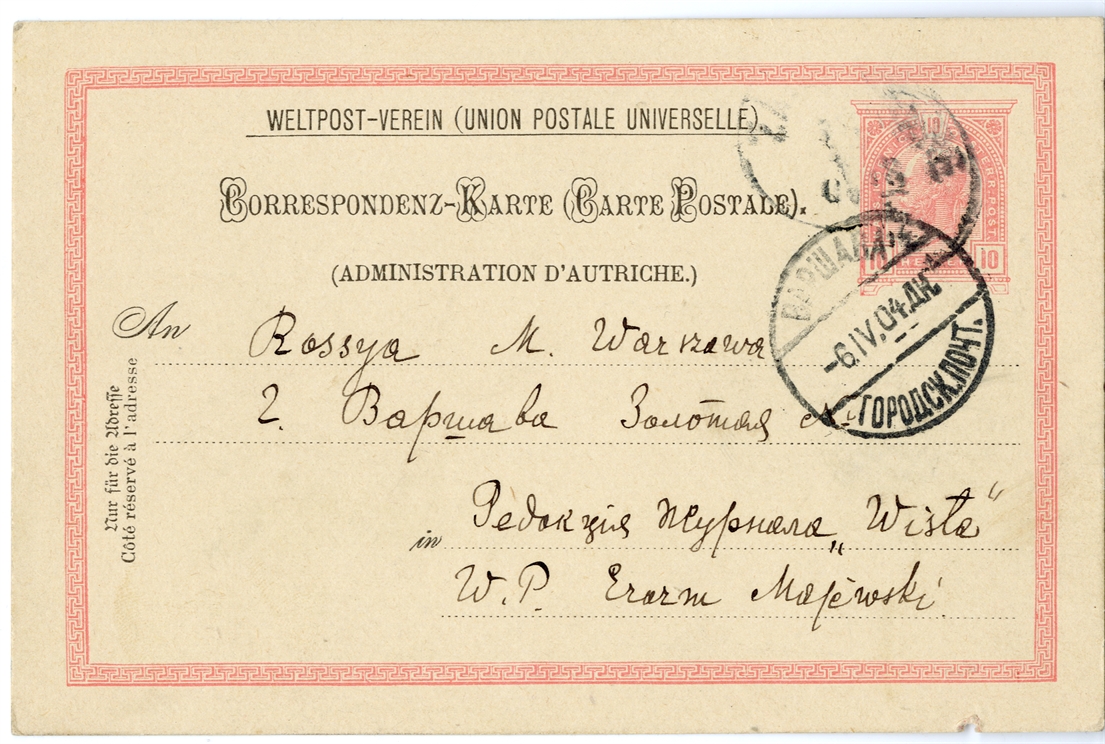 WELTPOST-VEREIN (UNION POSTALE UNIVERSELLE).
CORRESPONDENZ-KARTE (CARTE POSTALE).
(ADMINISTRATION D'AUTRICHE.)
10
10
ВАРШАВА
-6.IV.04.
ГОРОДСК.ПОЧТ.
An
Rossya M. Warszawa
г. Варшава Золотая
in
Редакція Журнала „Wisła“
W. P. Erazm Majewski
Nur für die Adresse
Côté réservé à l'adresse